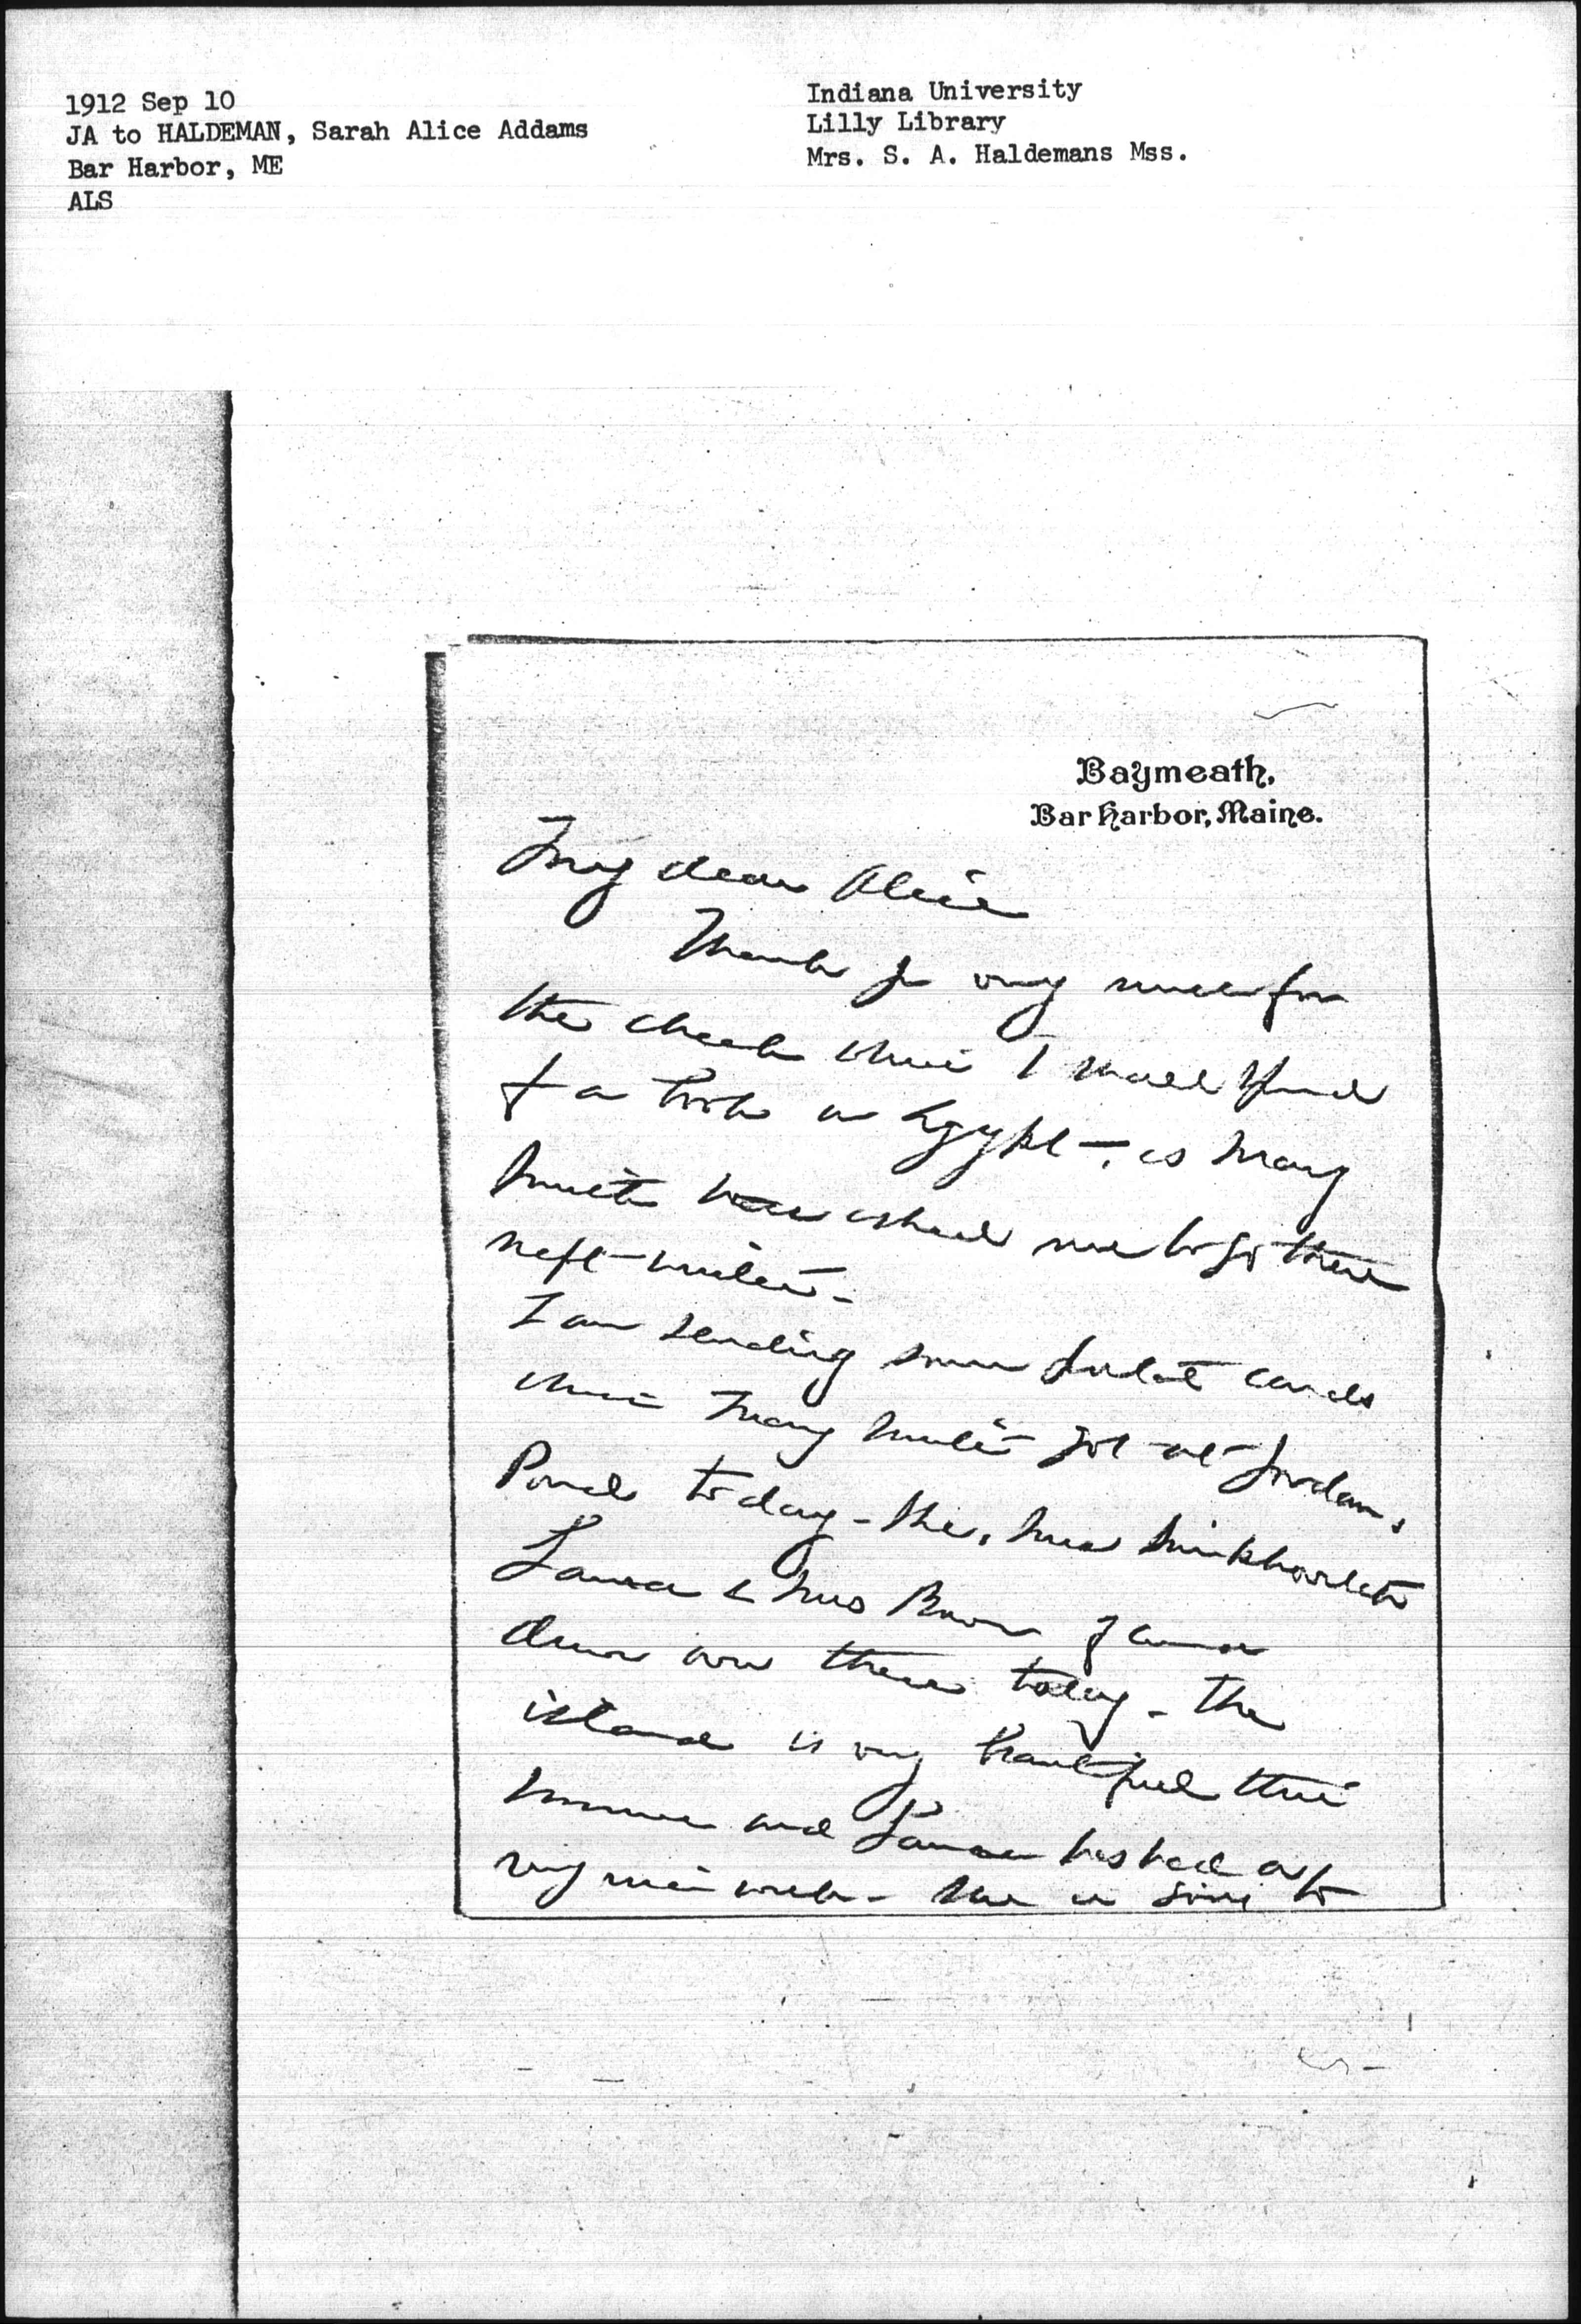 1912 Sep 10
JA to HALDEMAN, Sarah Alice Addams
Bar Harbor, ME
ALS
Indiana University
Lilly Library
Mrs. S. A. Haldemans Mss.
Baymeath,
Bar Harbor, Maine.
My dear Alice
Thank you very much for
the check which I shall spend
for a book on Egypt —, as Mary
Smith has asked me to go there
next winter -
I am sending some postal cards
which Mary Smith got at Jordan's
Pond today - She, Miss
Laura & Mrs Bowen
over there today - The
island is very beautiful this
summer and Laura has had a
very nice week - She is going to